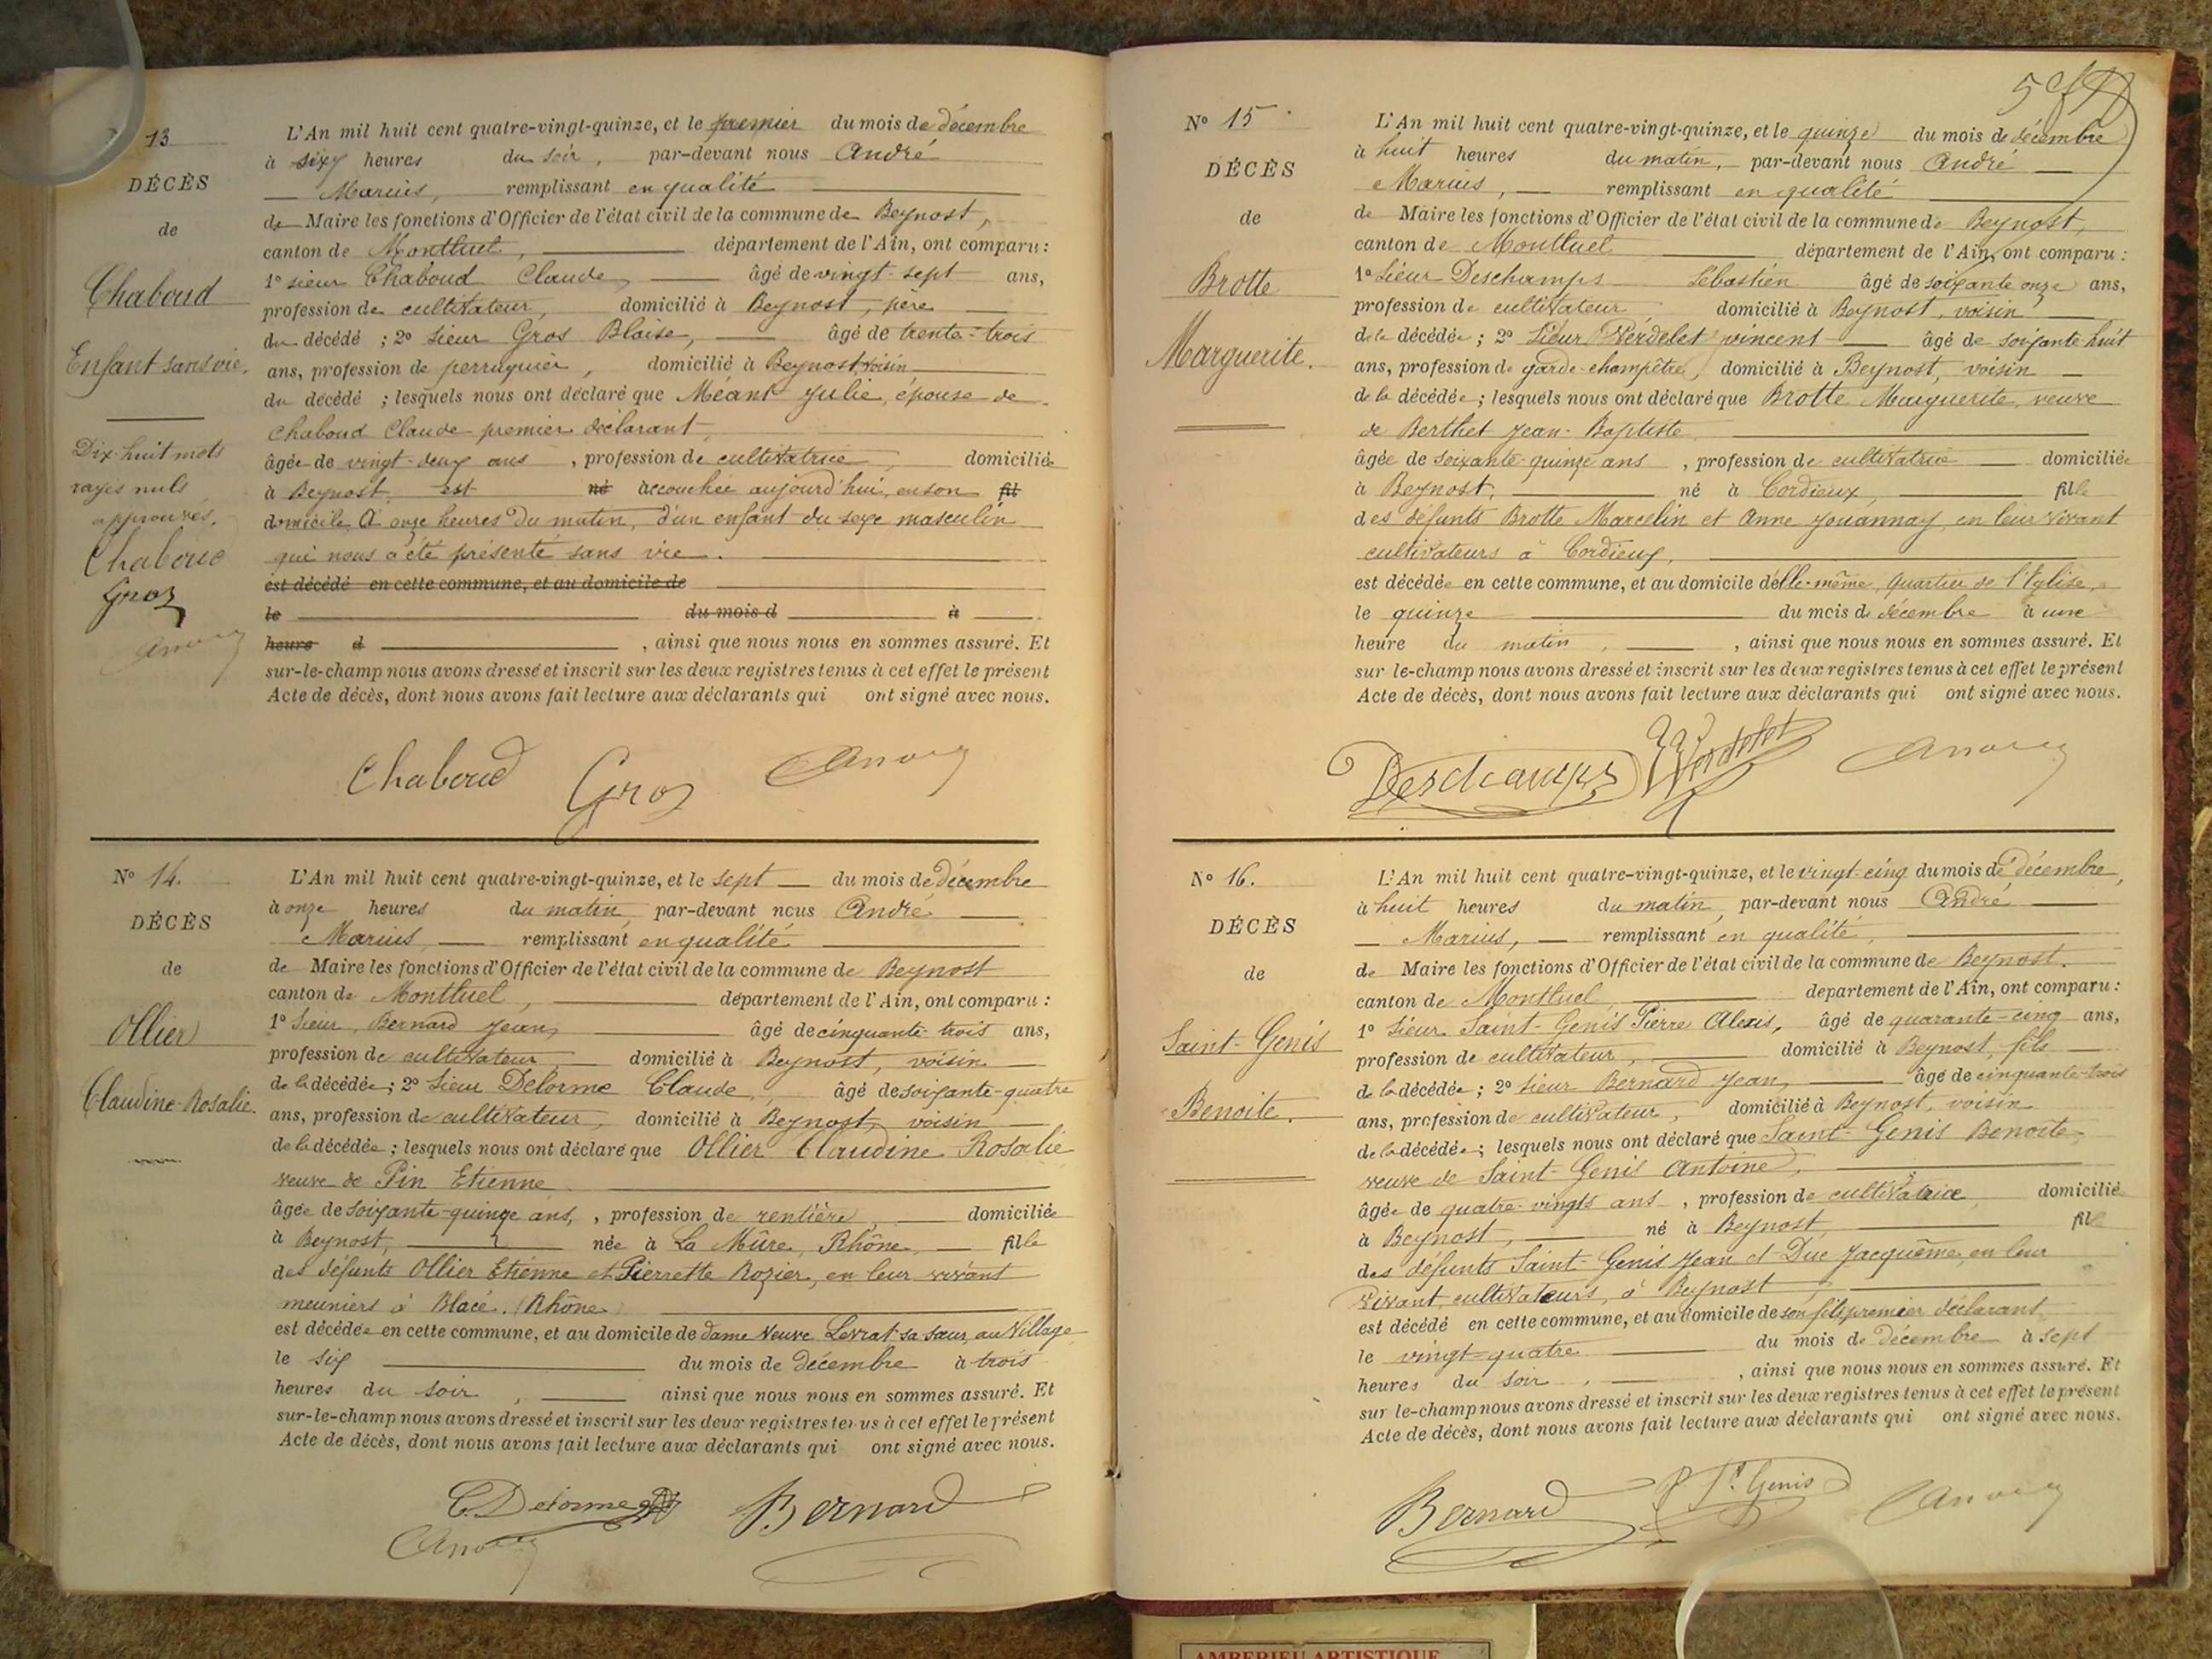 13
DÉCÈS
de
Chaboud
Enfant sans vie.
Dix-huit mots
rayés nuls
approuvés.
Chaboud
Gros
André
L'An mil huit cent quatre-vingt-quinze, et le premier du mois de décembre
à six heures du soir, par-devant nous André
Marius, remplissant en qualité
de Maire les fonctions d'Officier de l'état civil de la commune de Beynost,
canton de Montluel, département de l'Ain, ont comparu :
1º sieur Chaboud Claude, âgé de vingt-sept ans,
profession de cultivateur, domicilié à Beynost, père
du décédé ; 2º sieur Gros Blaise, âgé de trente-trois
ans, profession de perruquier, domicilié à Beynost, voisin
du décédé ; lesquels nous ont déclaré que Méant Julie, épouse de
Chaboud Claude premier déclarant,
âgée de vingt-deux ans, profession de cultivatrice, domiciliée
à Beynost, est né accouchée aujourd'hui, en son fil
domicile à onze heures du matin, d'un enfant du sexe masculin
qui nous a été présenté sans vie.
est décédé en cette commune, et au domicile de
le du mois d à
heure d , ainsi que nous nous en sommes assuré. Et
sur-le-champ nous avons dressé et inscrit sur les deux registres tenus à cet effet le présent
Acte de décès, dont nous avons fait lecture aux déclarants qui ont signé avec nous.
Chaboud Gros André
Nº 14.
DÉCÈS
de
Ollier
Claudine-Rosalie.
L'An mil huit cent quatre-vingt-quinze, et le sept du mois de décembre
à onze heures du matin, par-devant nous André
Marius, remplissant en qualité
de Maire les fonctions d'Officier de l'état civil de la commune de Beynost
canton de Montluel, département de l'Ain, ont comparu :
1º Sieur Bernard Jean, âgé de cinquante-trois ans,
profession de cultivateur, domicilié à Beynost, voisin
de la décédée ; 2º Sieur Delorme Claude, âgé de soixante-quatre
ans, profession de cultivateur, domicilié à Beynost, voisin
de la décédée ; lesquels nous ont déclaré que Ollier Claudine Rosalie
veuve de Pin Etienne
âgée de soixante-quinze ans, profession de rentière, domiciliée
à Beynost, née à La Mûre, Rhône, fille
des défunts Ollier Etienne et Pierrette Rozier, en leur vivant
meuniers à Blacé. (Rhône)
est décédée en cette commune, et au domicile de dame Veuve Levrat sa sœur, au Village
le six du mois de décembre à trois
heures du soir, ainsi que nous nous en sommes assuré. Et
sur-le-champ nous avons dressé et inscrit sur les deux registres tenus à cet effet le présent
Acte de décès, dont nous avons fait lecture aux déclarants qui ont signé avec nous.
C. Delorme Bernard
André
5
Nº 15
DÉCÈS
de
Brotte
Marguerite.
L'An mil huit cent quatre-vingt-quinze, et le quinze du mois de décembre
à huit heures du matin, par-devant nous André
Marius, remplissant en qualité
de Maire les fonctions d'Officier de l'état civil de la commune de Beynost,
canton de Montluel département de l'Ain, ont comparu :
1º Sieur Deschamps Sébastien âgé de soixante onze ans,
profession de cultivateur domicilié à Beynost, voisin
de la décédée ; 2º Sieur Verdelet Vincent âgé de soixante huit
ans, profession de garde-champêtre, domicilié à Beynost, voisin
de la décédée ; lesquels nous ont déclaré que Brotte Marguerite veuve
de Berthet Jean-Baptiste
âgée de soixante-quinze ans, profession de cultivatrice domiciliée
à Beynost, né à Cordieux, fille
des défunts Brotte Marcelin et Anne Jouannay, en leur vivant
cultivateurs à Cordieux,
est décédée en cette commune, et au domicile d'elle-même, quartier de l'Eglise,
le quinze du mois de décembre à une
heure du matin, ainsi que nous nous en sommes assuré. Et
sur le-champ nous avons dressé et inscrit sur les deux registres tenus à cet effet le présent
Acte de décès, dont nous avons fait lecture aux déclarants qui ont signé avec nous.
Deschamps Verdelet André
Nº 16.
DÉCÈS
de
Saint-Genis
Benoite.
L'An mil huit cent quatre-vingt-quinze, et le vingt-cinq du mois de décembre,
à huit heures du matin, par-devant nous André
Marius, remplissant en qualité,
de Maire les fonctions d'Officier de l'état civil de la commune de Beynost.
canton de Montluel, departement de l'Ain, ont comparu :
1º Sieur Saint-Genis Pierre Alexis, âgé de quarante-cinq ans,
profession de cultivateur, domicilié à Beynost, fils
de la décédée ; 2º Sieur Bernard Jean, âgé de cinquante-trois
ans, profession de cultivateur, domicilié à Beynost, voisin
de la décédée ; lesquels nous ont déclaré que Saint-Genis Benoite,
veuve de Saint-Genis Antoine,
âgée de quatre-vingts ans, profession de cultivatrice, domicilié
à Beynost, né à Beynost, fille
des défunts Saint-Genis Jean et Duc Jacquême, en leur
vivant, cultivateurs, à Beynost
est décédé en cette commune, et au domicile de son fils, premier déclarant
le vingt-quatre du mois de décembre à sept
heures du soir, ainsi que nous nous en sommes assuré. Et
sur le-champ nous avons dressé et inscrit sur les deux registres tenus à cet effet le présent
Acte de décès, dont nous avons fait lecture aux déclarants qui ont signé avec nous.
Bernard P. St. Genis André
AMBERIEU ARTISTIQUE